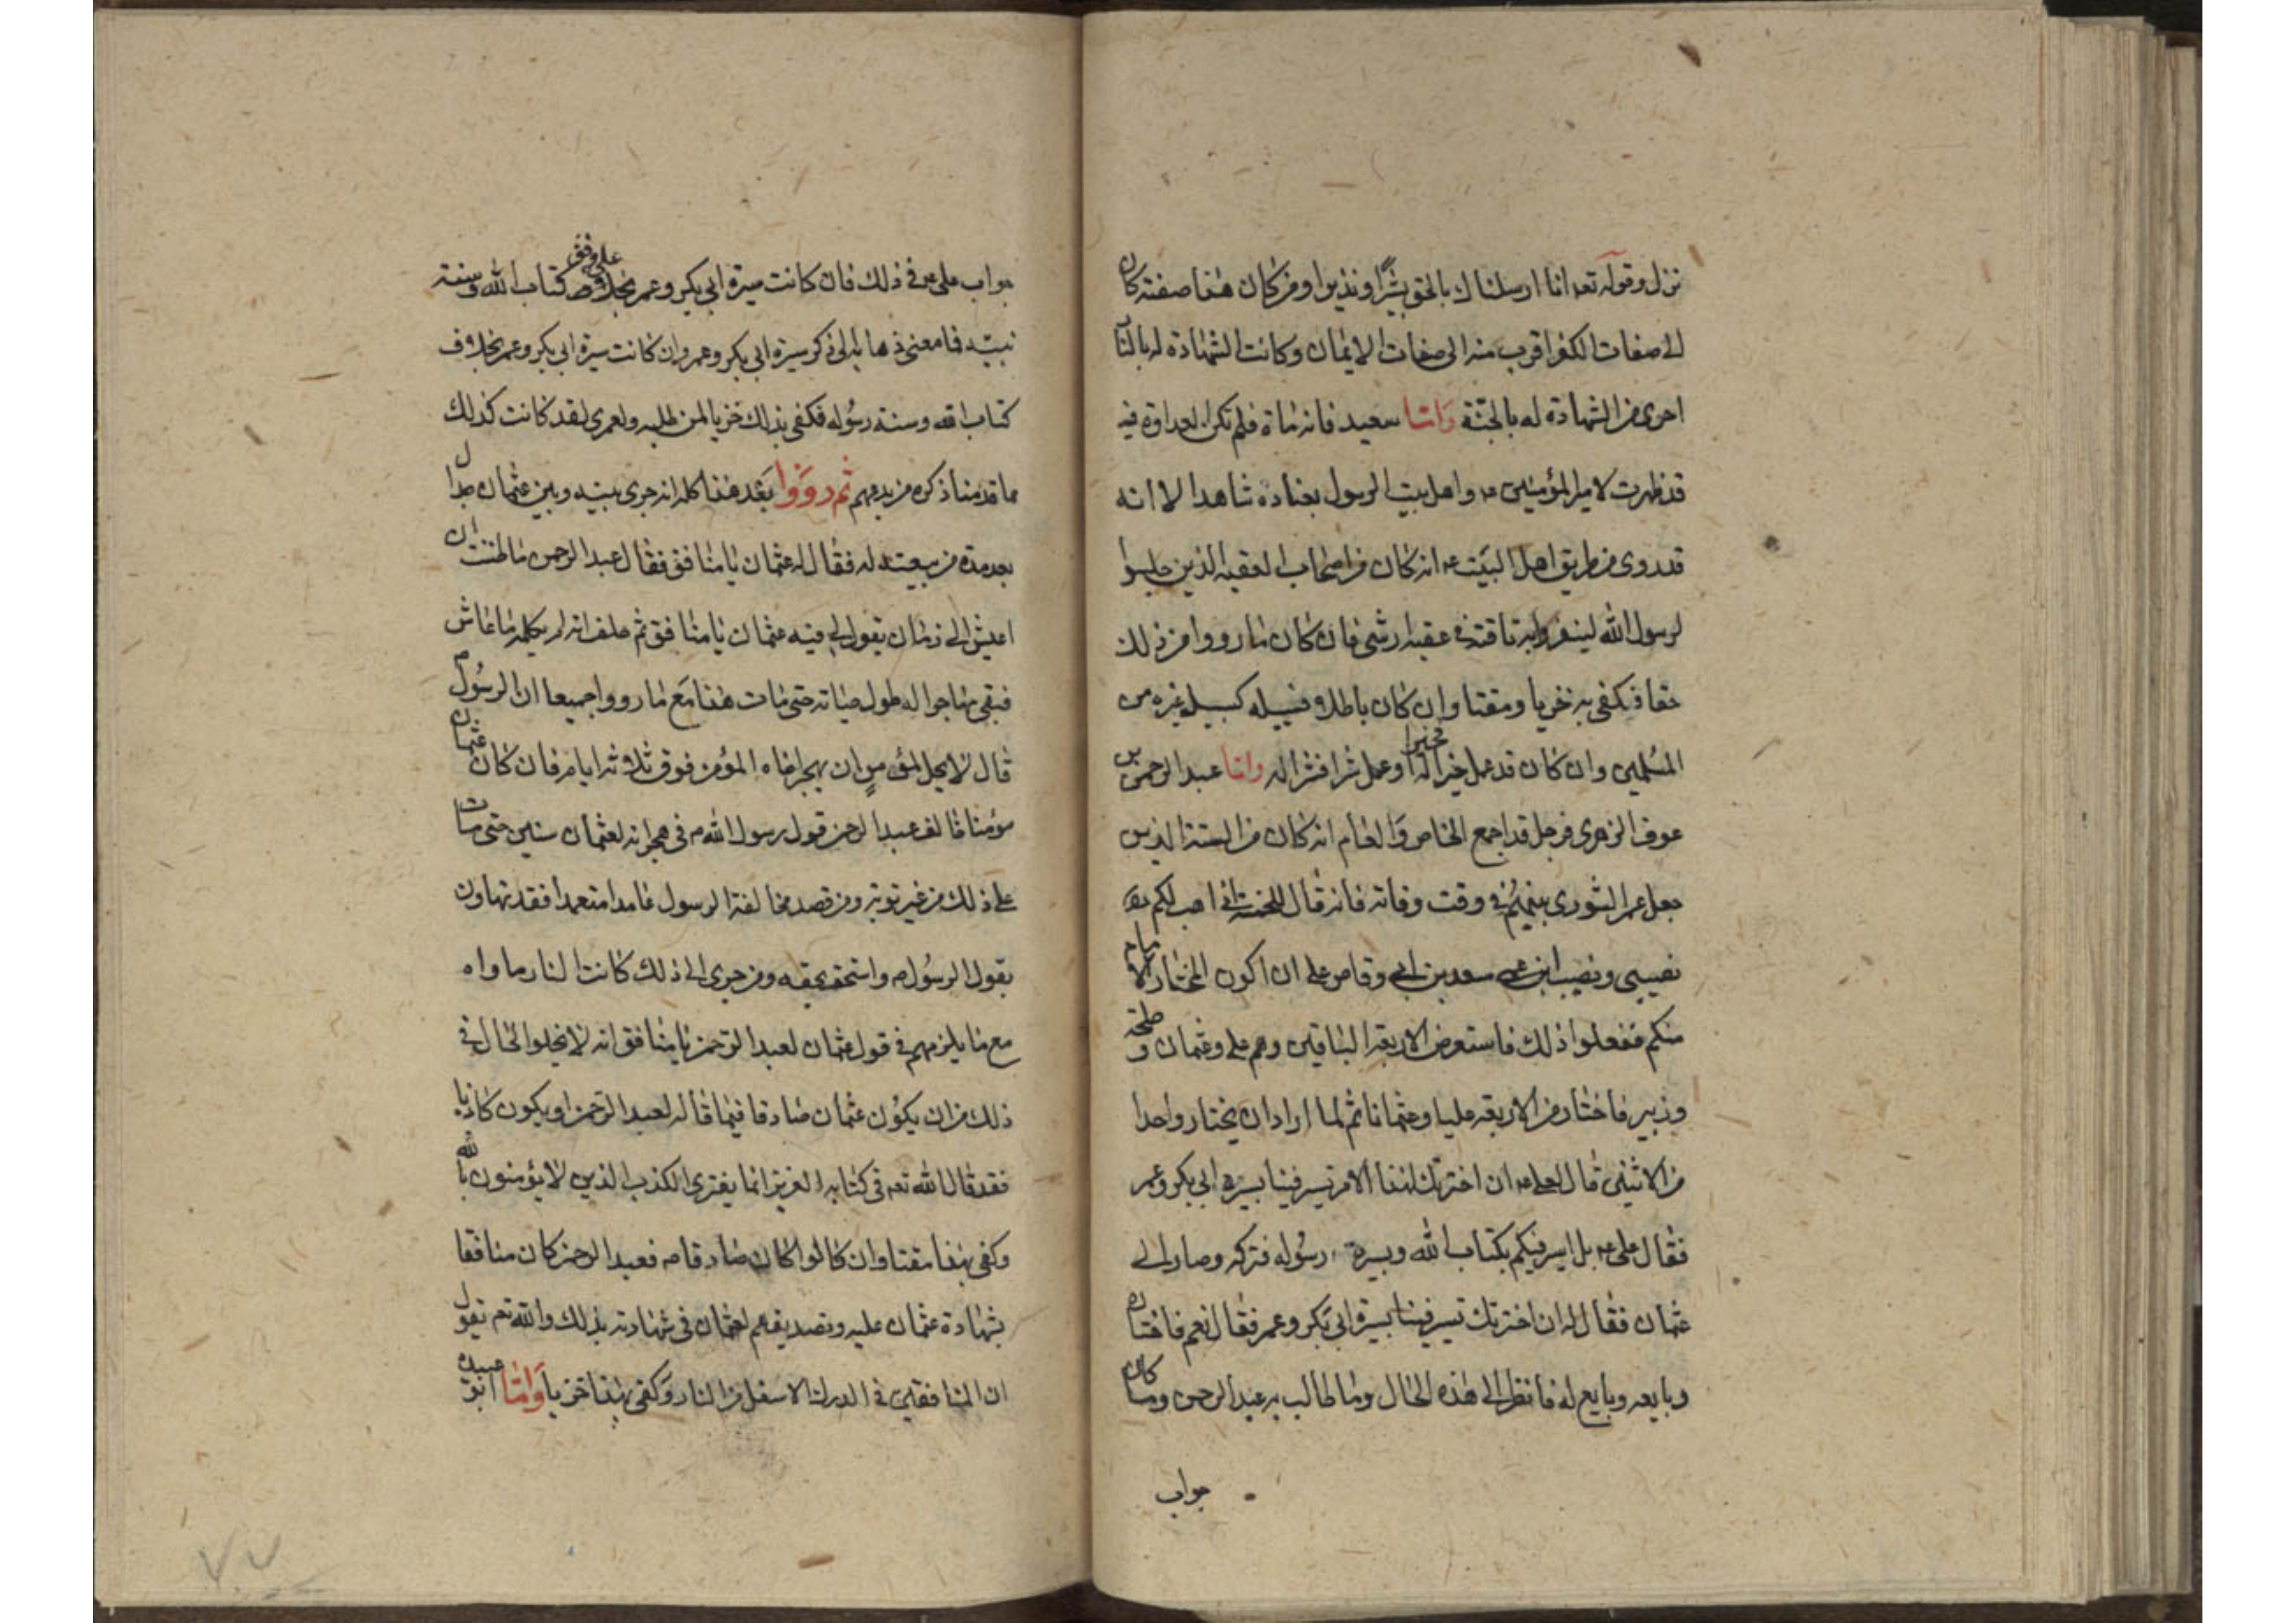 نزل وقوله تعه انا ارسلناك بالحق بشيرا ونذيرا ومن كان هذا صفته كان
الى صفات الكفر اقرب منه الى صفات الايمان وكانت الشهادة له بالنار
احرى من الشهادة له بالجنة واما سعيد فانه مات فلم تكن العداوة فيه
قد ظهرت لامير المؤمنين عه واهل بيت الرسول بعناده شاهدا الا انه
قد روى من طريق اهل البيت عه انه كان من اصحاب العقبة الذين جلسوا
لرسول الله لينفروا به ناقته فى عقبة رشى فان كان ما رووا من ذلك
حقا فكفى به خزيا ومقتا وان كان باطلا فسبيله كسبيل غيره من
المسلمين وان كان قد عمل خيرا فخيرا له او عمل شرا فشرا له واما عبد الرحمن بن
عوف الزهرى فرجل قد اجمع الخاص والعام انه كان من الستة الذين
جعل عمر الشورى بينهم فى وقت وفاته فانه قال للخمسة انى اهب لكم
نصيبى ونصيب ابن عمى سعد بن ابى وقاص على ان اكون المختار للامام
منكم ففعلوا ذلك فاستعرض الاربعة الباقين وهم على وعثمان وطلحة
وزبير فاختار من الاربعة عليا وعثمانا ثم لما اراد ان يختار واحدا
من الاثنين قال لعلى عه ان اخترتك لهذا الامر تسير فينا بسيرة ابى بكر وعمر
فقال على عه بل اسير فيكم بكتاب الله وبسيرة رسوله فتركه وصار الى
عثمان فقال له ان اخترتك تسير فينا بسيرة ابى بكر وعمر فقال نعم فاختاره
وبايعه وبايع له فانظر الى هذه الحال وما طالب به عبد الرحمن وما كان
جواب
جواب على عه فى ذلك فان كانت سيرة ابى بكر وعمر على وفق كتاب الله وسنة
نبيه فما معنى ذهابه الى ذكر سيرة ابى بكر وعمر وان كانت سيرة ابى بكر وعمر بخلاف
كتاب الله وسنة رسوله فكفى بذلك خزيا لمن طلبه ولعمرى لقد كانت كذلك
مما قدمنا ذكره من بدعهم ثم رووا بعد هذا كله انه جرى بينه وبين عثمان جدال
بعد مدة من بيعته له فقال له عثمان يا منافق فقال عبد الرحمن ما ظننت ان
اعيش الى زمان يقول لى فيه عثمان يا منافق ثم حلف انه لم يكلمه ما عاش
فبقى مهاجرا له طول حياته حتى مات هذا مع ما رووا جميعا ان الرسول ص
قال لا يحل لمؤمن ان يهجر اخاه المؤمن فوق ثلاثة ايام فان كان عثمان
مؤمنا خالف عبد الرحمن قول رسول الله ص فى هجرانه لعثمان سنين حتى مات
على ذلك من غير توبة ومن قصد مخالفة الرسول عامدا متعمدا فقد تهاون
بقول الرسول ص واستخف بحقه ومن جرى الى ذلك كانت النار مأواه
مع ما يلزمهم فى قول عثمان لعبد الرحمن يا منافق انه لا يخلو الحال فى
ذلك من ان يكون عثمان صادقا فيما قاله لعبد الرحمن او يكون كاذبا
فقد قال الله تعه فى كتابه العزيز انما يفترى الكذب الذين لا يؤمنون بالله
وكفى بهذا مقتا وان قالوا كان صادقا فعبد الرحمن كان منافقا
بشهادة عثمان عليه وتصديقهم لعثمان فى شهادته بذلك والله تعه يقول
ان المنافقين فى الدرك الاسفل من النار وكفى بهذا خزيا واما ابو عبيدة
٧٧